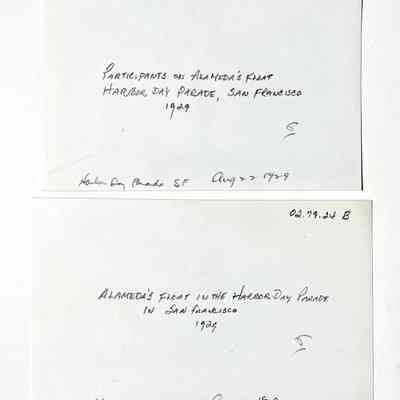 PARTICIPANTS ON ALAMEDA'S FLOAT
HARBOR DAY PARADE, SAN FRANCISCO
1929
5
Harbor Day Parade SF Aug 22 1929
02.79.24 B
ALAMEDA'S FLOAT IN THE HARBOR DAY PARADE
IN SAN FRANCISCO
1929
5